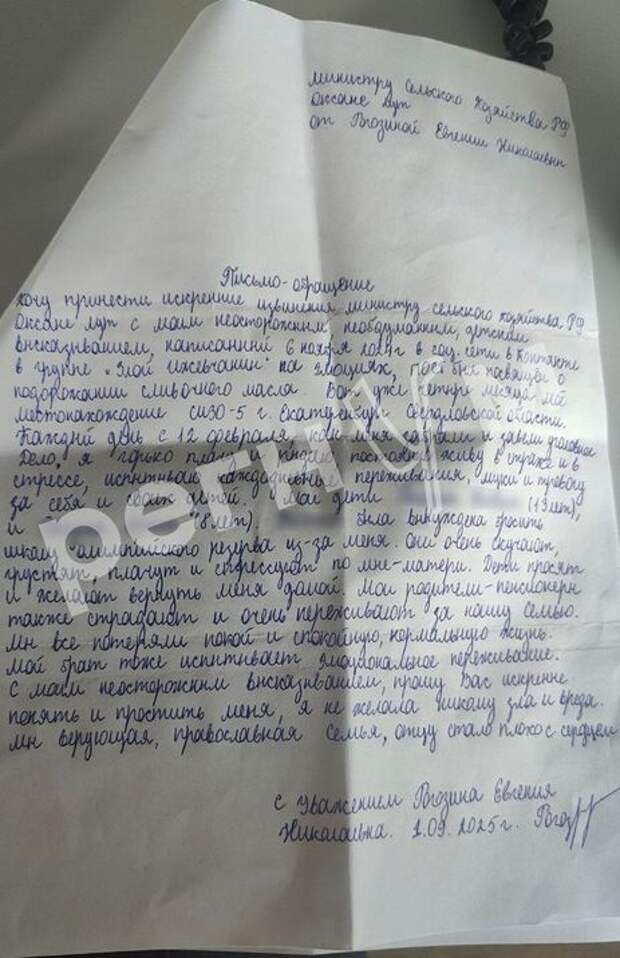 министру сельского хозяйства РФ
Оксане Лут
от Рогозиной Евгении Николаевны
Письмо-обращение
хочу принести искренние извинения министру сельского хозяйства РФ
Оксане Лут с моим неосторожным необдуманным, детским
высказыванием, написанный 6 ноября 2024г в соц. сети в Контакте
в группе "Злой ижевчанин" на эмоциях, пост был посвящён о
подорожании сливочного масла. Вот уже четыре месяца моё
местонахождение сизо-5 г. Екатеринбург Свердловской области.
Каждый день с 12 февраля, как меня забрали и завели уголовное
Дело, я горько плачу и рыдаю постоянно живу в страхе и в
стрессе, испытываю каждодневные переживания, муки и тревогу
за себя и своих детей. Мои дети (13 лет),
и (8 лет). была вынуждена бросить
школу олимпийского резерва из-за меня. Они очень скучают,
грустят, плачут и стрессуют по мне-матери. Дети просят
и желают вернуть меня домой. Мои родители-пенсионеры
также страдают и очень переживают за нашу семью.
Мы все потеряли покой и спокойную, нормальную жизнь.
Мой брат тоже испытывает эмоциональное переживание.
С моим неосторожным высказыванием, прошу Вас искренне
понять и простить меня, я не желала никому зла и вреда.
мы верующая, православная семья, отцу стало плохо с сердцем
с уважением Рогозина Евгения
Николаевна. 1.09.2025г.
регнум